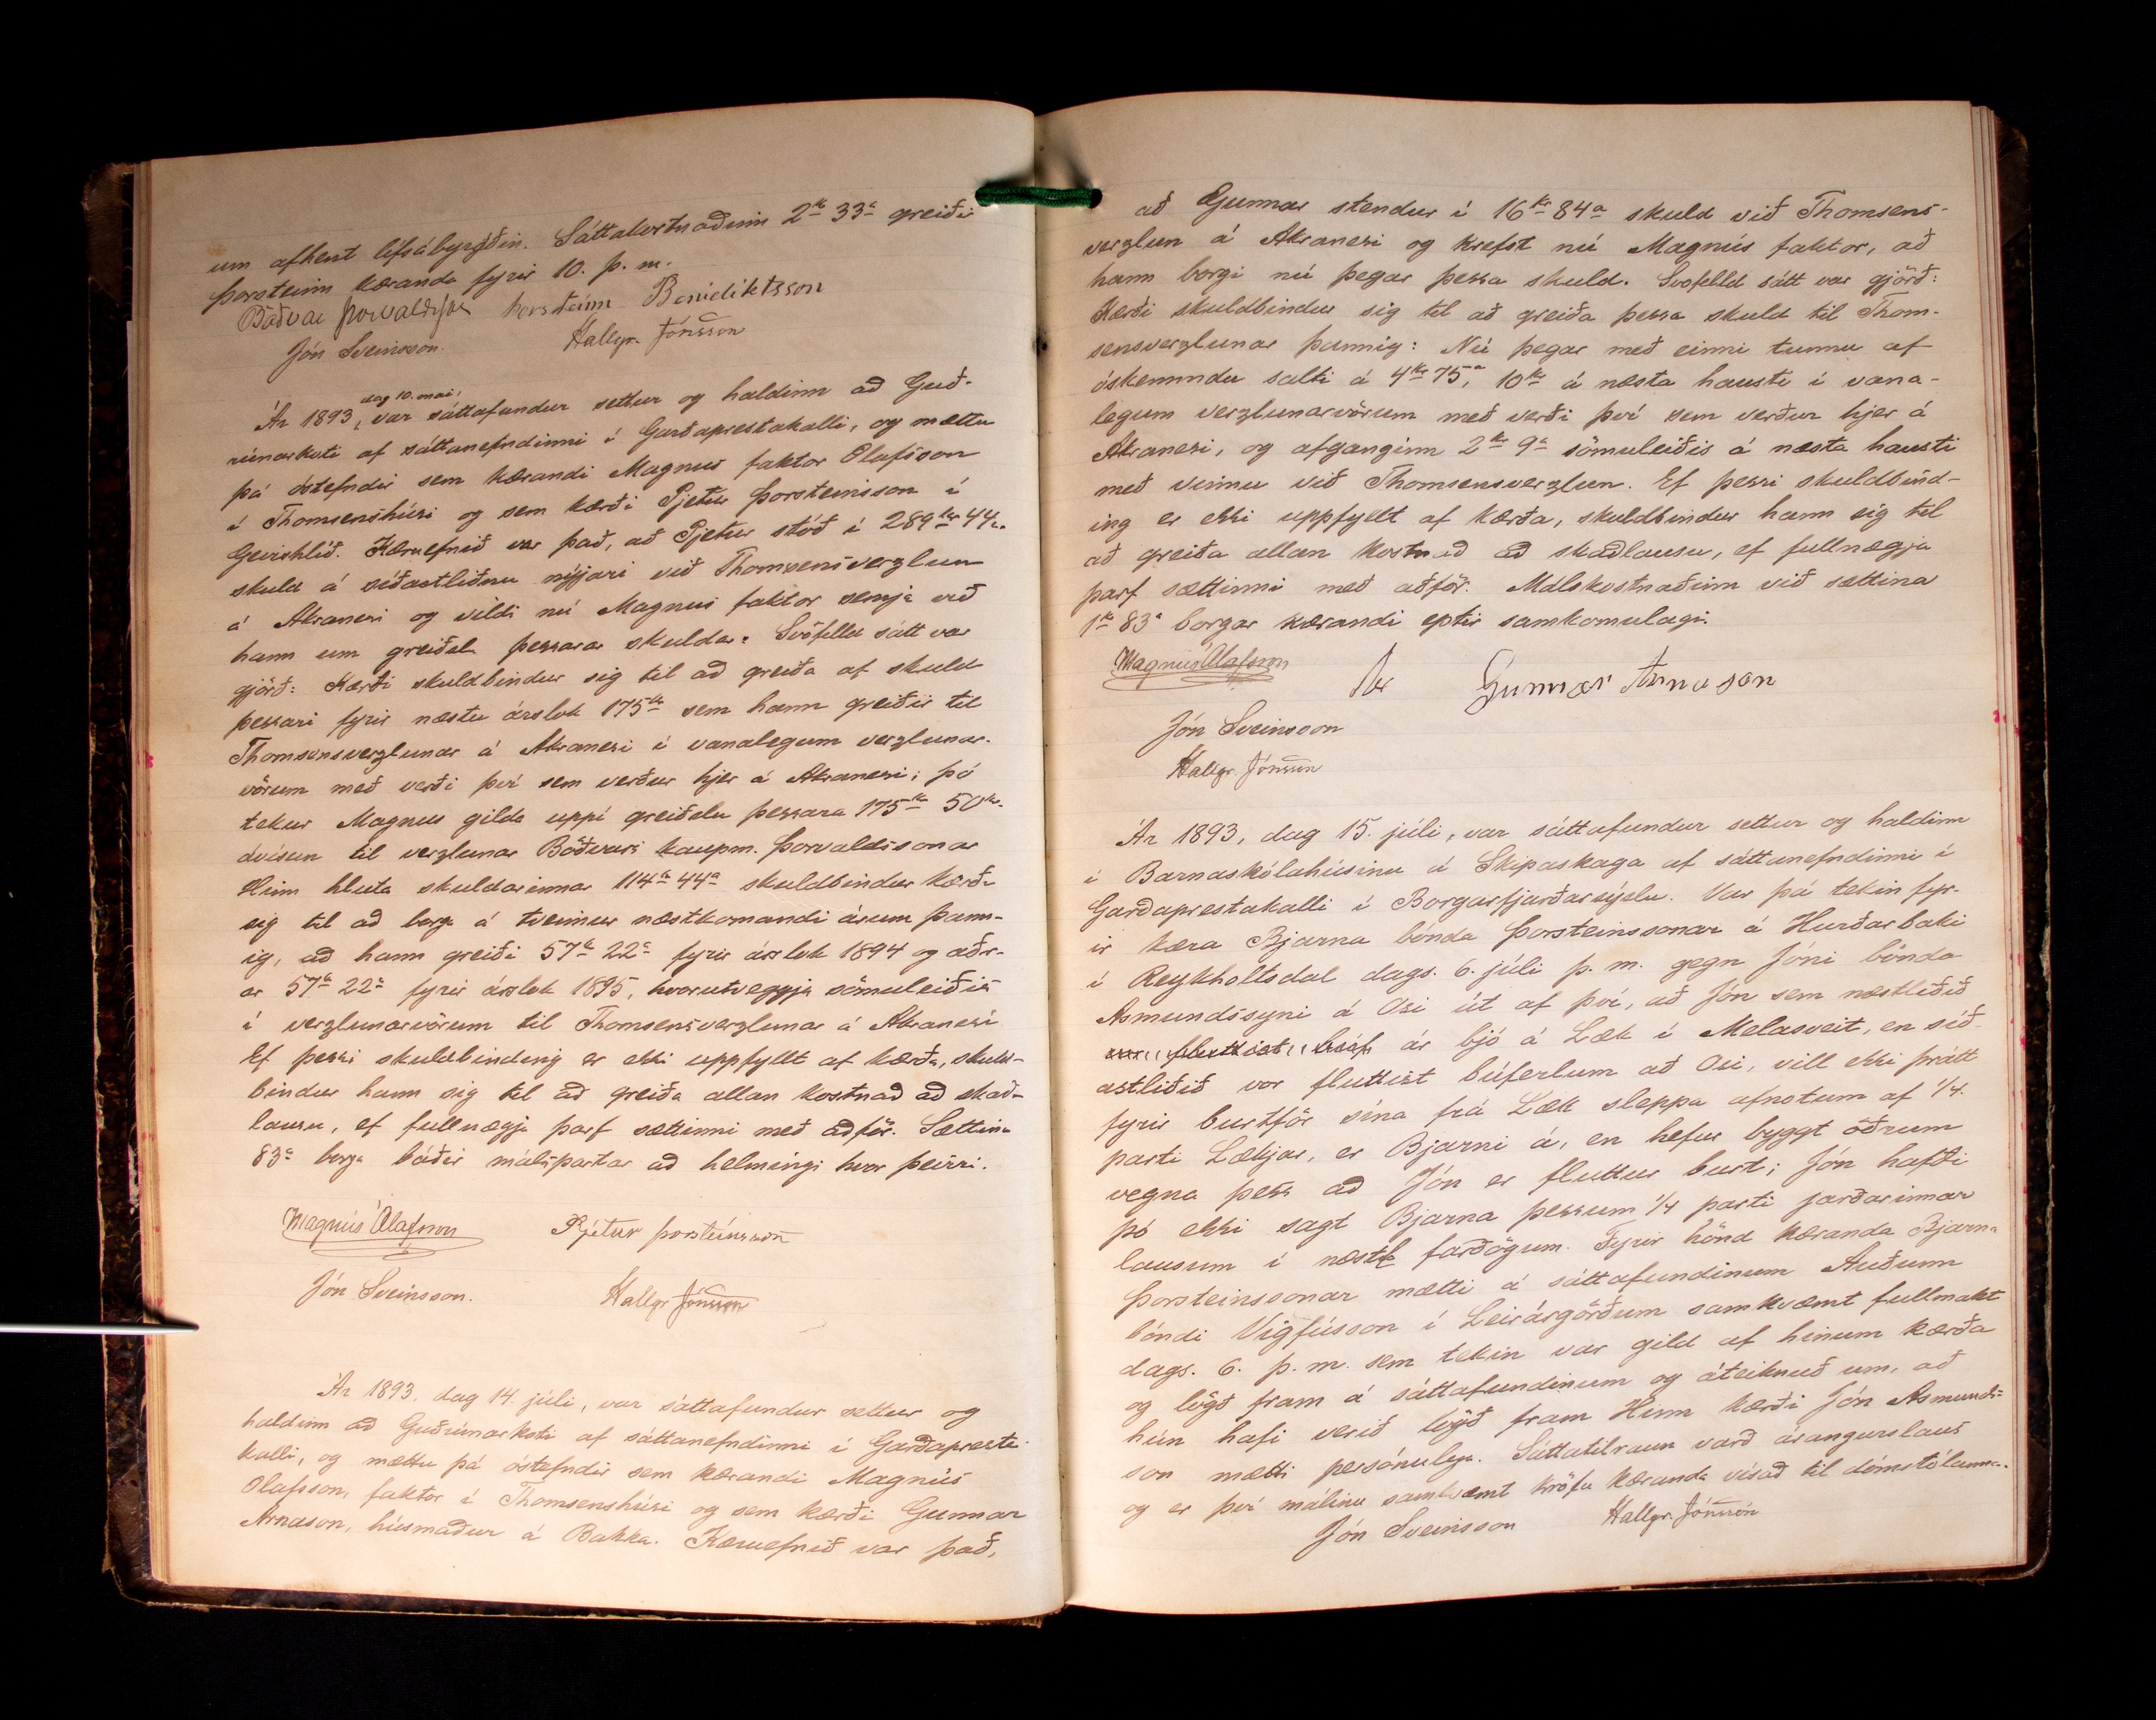 um afhent lífsábyrgðin. Sáttakostnaðinn 2 kr 33 a greiðir
Þorsteinn kæranda fyrir 10. þ. m.
Böðvar Þorvaldsson Þorsteinn Benediktsson
Jón Sveinsson. Hallgr. Jónsson
dag 10. mai,
Ár 1893, var sáttafundur settur og haldinn að Guð-
rúnarkoti af sáttanefndinni í Garðaprestakalli, og mættu
þá óstefndir sem kærandi Magnus faktor Olafsson
í Thomsenshúsi og sem kærði Pjetur Þorsteinsson í
Greirshlíð. Kæruefnið var það, að Pjetur stóð í 289 kr 44 a.
skuld á síðastliðnu nýjari við Thomsensverzlun
á Akranesi og vildi nú Magnus faktor semja við
hann um greiðslu þessarar skuldar. Svofelld sátt var
gjörð: Kærði skuldbindur sig til að greiða af skuld
þessari fyrir næstu árslok 175 kr sem hann greiðir til
Thomsensverzlunar á Akranesi í vanalegum verzlunar-
vörum með verði því sem verður hjer á Akranesi; þó
tekur Magnus gilda uppí greiðslu þessara 175 kr 50 kr.
ávísun til verzlunar Böðvars kaupm. Þorvaldssonar
Hinn hluta skuldarinnar 114 kr 44 a skuldbindur kærði
sig til að borga á tveimur næstkomandi árum þann-
ig, að hann greiði 57 kr 22 a fyrir árslok 1894 og aðr-
ar 57 kr 22 a fyrir árslok 1895, hvorutveggja sömuleiðis
í verzlunarvörum til Thomsensverzlunar á Akranesi
Ef þessi skuldbinding er ekki uppfyllt af kærða, skuld-
bindur hann sig til að greiða allan kostnað að skað-
lausu, ef fullnægja þarf sættinni með aðför. Sættina
83 a borga báðir málspartar að helmingi hvor þeirri.
Magnús Ólafsson Pjétur Þorsteinsson
Jón Sveinsson. Hallgr. Jónsson
Ár 1893, dag 14. júli, var sáttafundur settur og
haldinn að Guðrúnarkoti af sáttanefndinni í Garðapresta-
kalli, og mættu þá óstefndir sem kærandi Magnús
Olafsson, faktor í Thomsenshúsi og sem kærði Gunnar
Arnason, húsmaður á Bakka. Kæruefnið var það,
að Gunnar stendur í 16 kr 84 a skuld við Thomsens-
verzlun á Akranesi og krefst nú Magnús faktor, að
hann borgi nú þegar þessa skuld. Svofelld sátt var gjörð:
Kærði skuldbindur sig til að greiða þessa skuld til Thom-
sensverzlunar þannig: Nú þegar með einni tunnu af
óskemmdu salti á 4 kr 75 a, 10 kr á næsta hausti í vana-
legum verzlunarvörum með verði því sem verður hjer á
Akranesi, og afganginn 2 kr 9 a sömuleiðis á næsta hausti
með vinnu við Thomsensverzlun. Ef þessi skuldbind-
ing er ekki uppfyllt af kærða, skuldbindur hann sig til
að greiða allan kostnað að skaðlausu, ef fullnægja
þarf sættinni með aðför. Málskostnaðinn við sættina
1 kr 83 a borgar kærandi eptir samkomulagi.
Magnús Ólafsson Gunnar Arnason
Jón Sveinsson
Hallgr. Jónsson
Ár 1893, dag 15. júli, var sáttafundur settur og haldinn
í Barnaskólahúsinu á Skipaskaga af sáttanefndinni í
Garðaprestakalli í Borgarfjarðarsýslu. Var þá tekin fyr-
ir kæra Bjarna bónda Þorsteinssonar á Hurðarbaki
í Reykholtsdal dags. 6. júli þ. m. gegn Jóni bónda
Asmundssyni á Osi út af því, að Jón sem næstliðið
ár bjó á Læk í Melasveit, en síð-
astliðið vor fluttist búferlum að Osi, vill ekki þrátt
fyrir burtför sína frá Læk sleppa afnotum af 1/4.
parti Lækjar, er Bjarni á, en hefur byggt öðrum
vegna þess að Jón er fluttur burt; Jón hafði
þó ekki sagt Bjarna þessum 1/4 parti jarðarinnar
lausum í næstu fardögum. Fyrir hönd kæranda Bjarna
Þorsteinssonar mætti á sáttafundinum Auðunn
bóndi Vigfússon í Leirárgörðum samkvæmt fullmakt
dags. 6. þ. m. sem tekin var gild af hinum kærða
og lögð fram á sáttafundinum og áteiknuð um, að
hún hafi verið lögð fram Hinn kærði Jón Asmunds-
son mætti persónulega. Sáttatilraun varð árangurslaus
og er því málinu samkvæmt kröfu kæranda vísað til dómstólanna.
Jón Sveinsson Hallgr. Jónsson